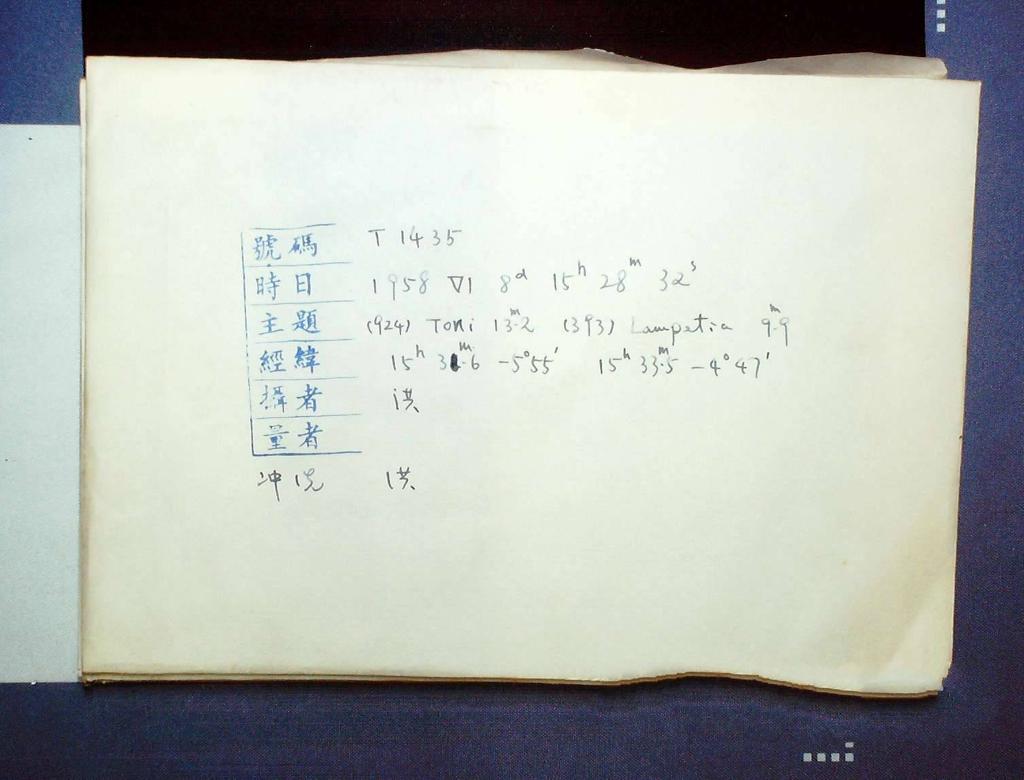 號碼 T 1435
時日 1958 VI 8ᵈ 15ʰ 28ᵐ 32ˢ
主題 (924) Toni 13ᵐ.2 (393) Lampetia 9ᵐ.9
經緯 15ʰ 3 ᵐ.6 -5°55′ 15ʰ 33ᵐ.5 -4°47′
攝者 洪
量者
冲洗 洪